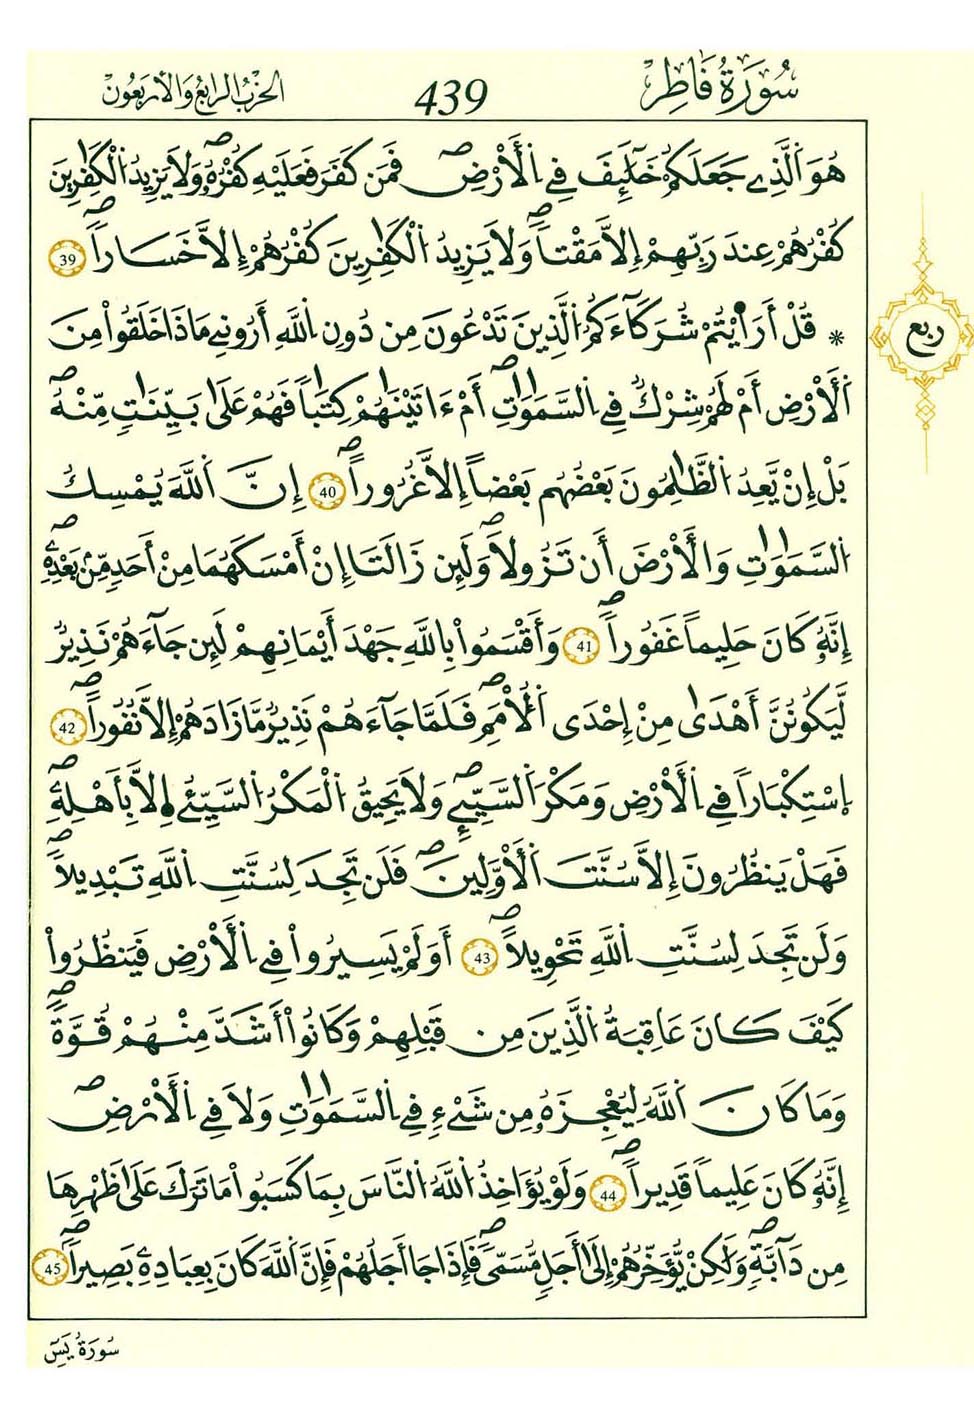 سُورَةُ فَاطِرٍ
439
الحِزْبُ الرَابِعُ وَالأَرْبَعُونَ
هُوَ اَلذِے جَعَلَكُمْ خَلَٰٓئِفَ فِے اِلَارْضِۖ فَمَن كَفَرَ فَعَلَيْهِ كُفْرُهُۥۖ وَلَا يَزِيدُ اُلْكَٰفِرِينَ
كُفْرُهُمْ عِندَ رَبِّهِمْ إِلَّا مَقْتاٗۖ وَلَا يَزِيدُ اُلْكَٰفِرِينَ كُفْرُهُمْ إِلَّا خَسَاراٗۖ 39
* قُلْ أَرَٰٓيْتُمْ شُرَكَآءَكُمُ اُلذِينَ تَدْعُونَ مِن دُونِ اِللَّهِ أَرُونِے مَاذَا خَلَقُواْ مِنَ
اَلَارْضِ أَمْ لَهُمْ شِرْكٞ فِے اِلسَّمَٰوَٰتِۖ أَمَ اٰتَيْنَٰهُمْ كِتَٰباٗ فَهُمْ عَلَىٰ بَيِّنَٰتٖ مِّنْهُۖ
بَلِ اِنْ يَّعِدُ اُلظَّٰلِمُونَ بَعْضُهُم بَعْضاً اِلَّا غُرُوراًۖ 40 إِنَّ اَللَّهَ يُمْسِكُ
اُلسَّمَٰوَٰتِ وَالَارْضَ أَن تَزُولَاۖ وَلَئِن زَالَتَا إِنَ اَمْسَكَهُمَا مِنَ اَحَدٖ مِّنۢ بَعْدِهِۦۖ
إِنَّهُۥ كَانَ حَلِيماً غَفُوراٗۖ 41 وَأَقْسَمُواْ بِاللَّهِ جَهْدَ أَيْمَٰنِهِمْ لَئِن جَآءَهُمْ نَذِيرٞ
لَّيَكُونُنَّ أَهْدَىٰ مِنِ اِحْدَى اَلُامَمِۖ فَلَمَّا جَآءَهُمْ نَذِيرٞ مَّا زَادَهُمُۥ إِلَّا نُفُوراًۖ 42
اِسْتِكْبَاراٗ فِے اِلَارْضِ وَمَكْرَ اَلسَّيِّےِٕۖ وَلَا يَحِيقُ اُلْمَكْرُ اُلسَّيِّئُ اِلَّا بِأَهْلِهِۦۖ
فَهَلْ يَنظُرُونَ إِلَّا سُنَّتَ اَلَاوَّلِينَۖ فَلَن تَجِدَ لِسُنَّتِ اِللَّهِ تَبْدِيلاٗۖ
وَلَن تَجِدَ لِسُنَّتِ اِللَّهِ تَحْوِيلاًۖ 43 أَوَلَمْ يَسِيرُواْ فِے اِلَارْضِ فَيَنظُرُواْ
كَيْفَ كَانَ عَٰقِبَةُ اُلذِينَ مِن قَبْلِهِمْ وَكَانُواْ أَشَدَّ مِنْهُمْ قُوَّةٗۖ
وَمَا كَانَ اَللَّهُ لِيُعْجِزَهُۥ مِن شَےْءٖ فِے اِلسَّمَٰوَٰتِ وَلَا فِے اِلَارْضِۖ
إِنَّهُۥ كَانَ عَلِيماٗ قَدِيراٗۖ 44 وَلَوْ يُؤَاخِذُ اُللَّهُ اُلنَّاسَ بِمَا كَسَبُواْ مَا تَرَكَ عَلَىٰ ظَهْرِهَا
مِن دَآبَّةٖۖ وَلَٰكِنْ يُّؤَخِّرُهُمُۥ إِلَىٰ أَجَلٖ مُّسَمّيٗۖ فَإِذَا جَا أَجَلُهُمْ فَإِنَّ اَللَّهَ كَانَ بِعِبَادِهِۦ بَصِيراٗۖ 45
ربع
سُورَةُ يَسٓ